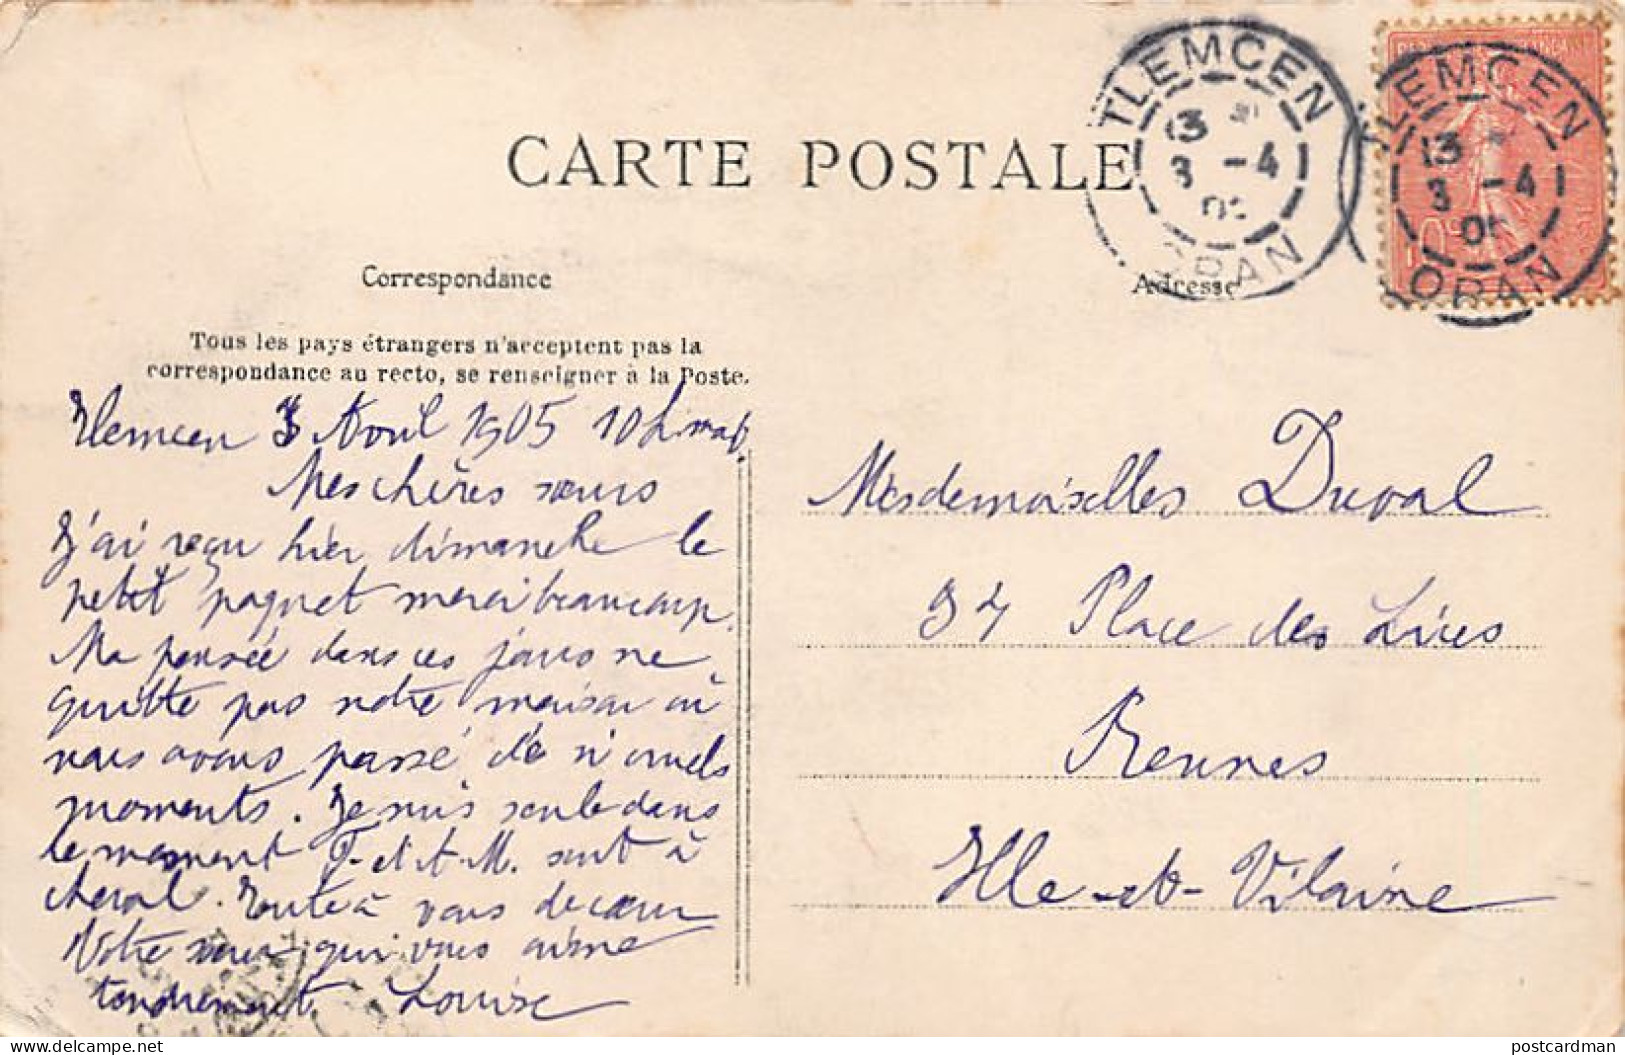 CARTE POSTALE
TLEMCEN
13
3 -4
05
ORAN
TLEMCEN
13
3 -4
05
ORAN
Correspondance
Adresse
Tous les pays étrangers n'acceptent pas la
correspondance au recto, se renseigner à la Poste.
Tlemcen 3 Avril 1905 10 h. mat.
Mes chères sœurs
J'ai reçu hier dimanche le
petit paquet merci beaucoup.
Ma pensée dans ces jours ne
quitte pas notre maison où
nous avons passé de si cruels
moments. Je suis seule dans
le moment T. et A-M. sont à
cheval. Toute à vous de cœur
Votre sœur qui vous aime
tendrement. Louise
Mesdemoiselles Duval
34 Place des Lices
Rennes
Ille-et-Vilaine
delcampe.net
postcardman